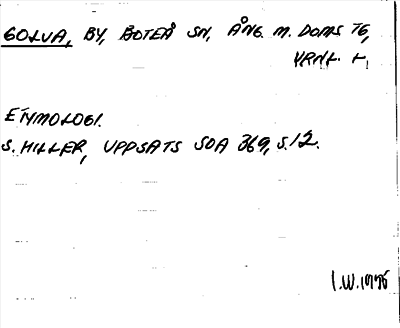 GOLVA, BY, BOTEÅ SN, ÅNG. M. DOMS TG,
VRNL. L.
ETYMOLOGI.
S. HILLER, UPPSATS SOA 369, S.12.
I.W. 1975